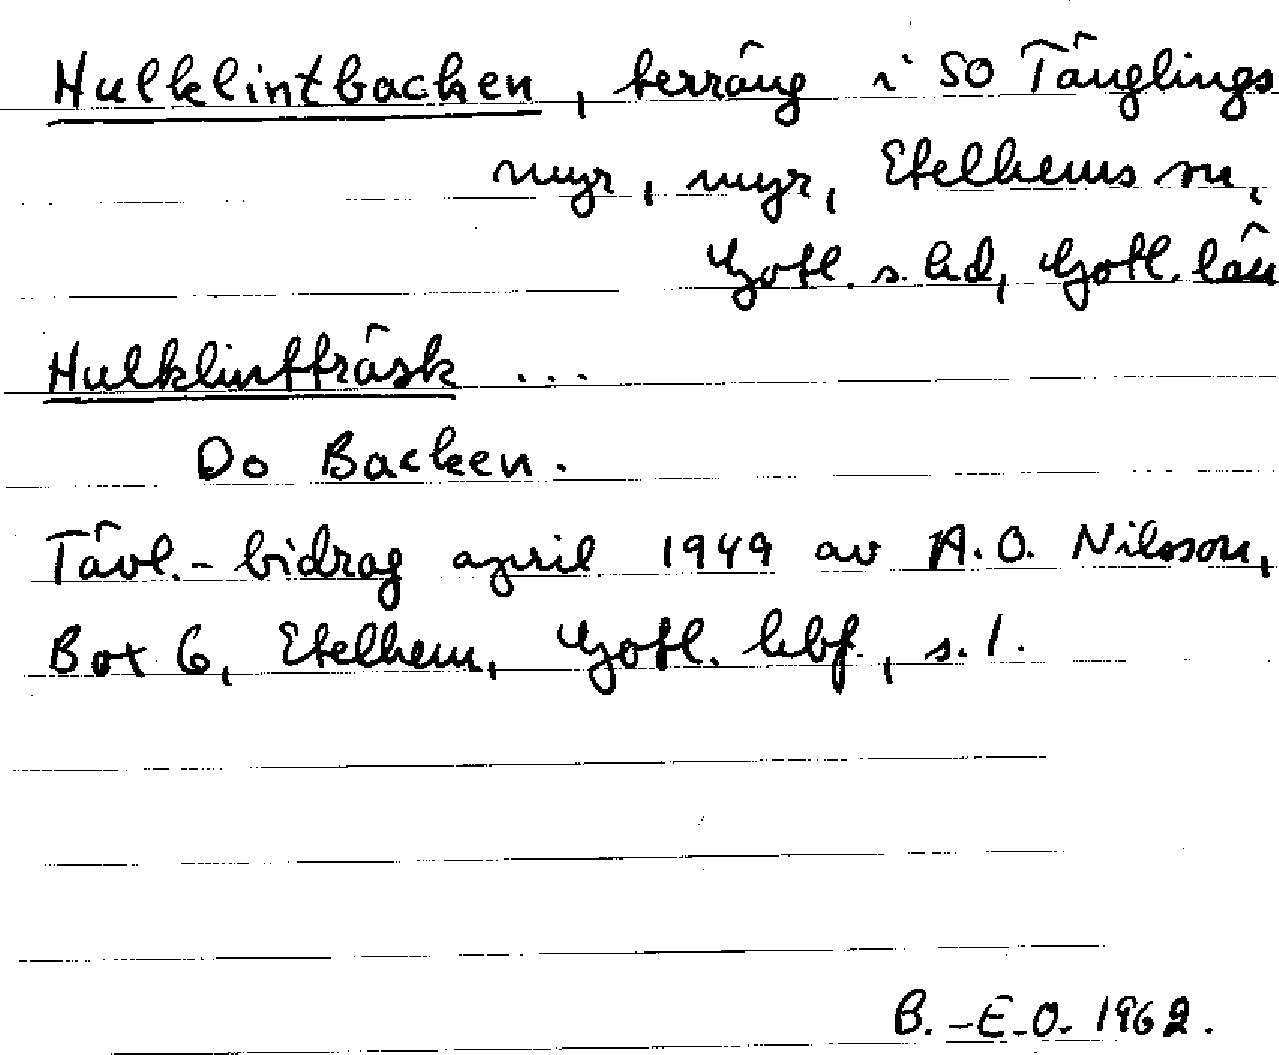 Hulklintbacken, terräng i SO Tänglings
myr, myr, Etelhems sn,
Gotl. s. hd, Gotl. län
Hulklintträsk ...
Do Backen.
Tävl.-bidrag april 1949 av A.O. Nilsson,
Box 6, Etelhem, Gotl. hbf., s. 1.
B.-E.O. 1962.